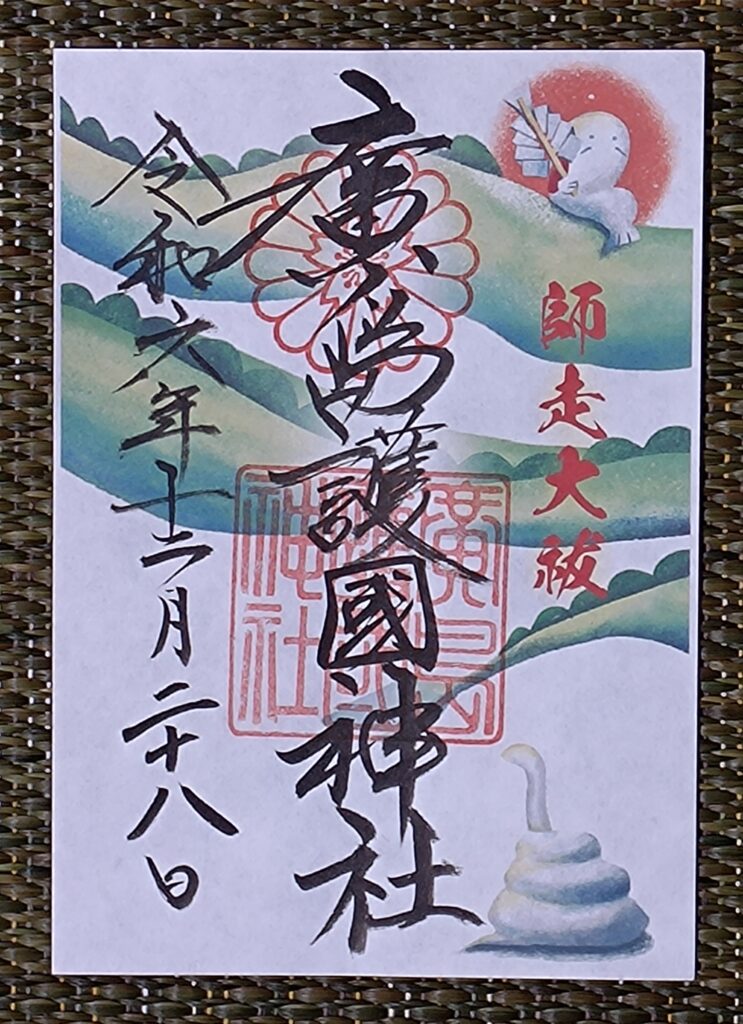 師走大祓
廣島護國神社
令和六年十二月二十八日
廣島
神社